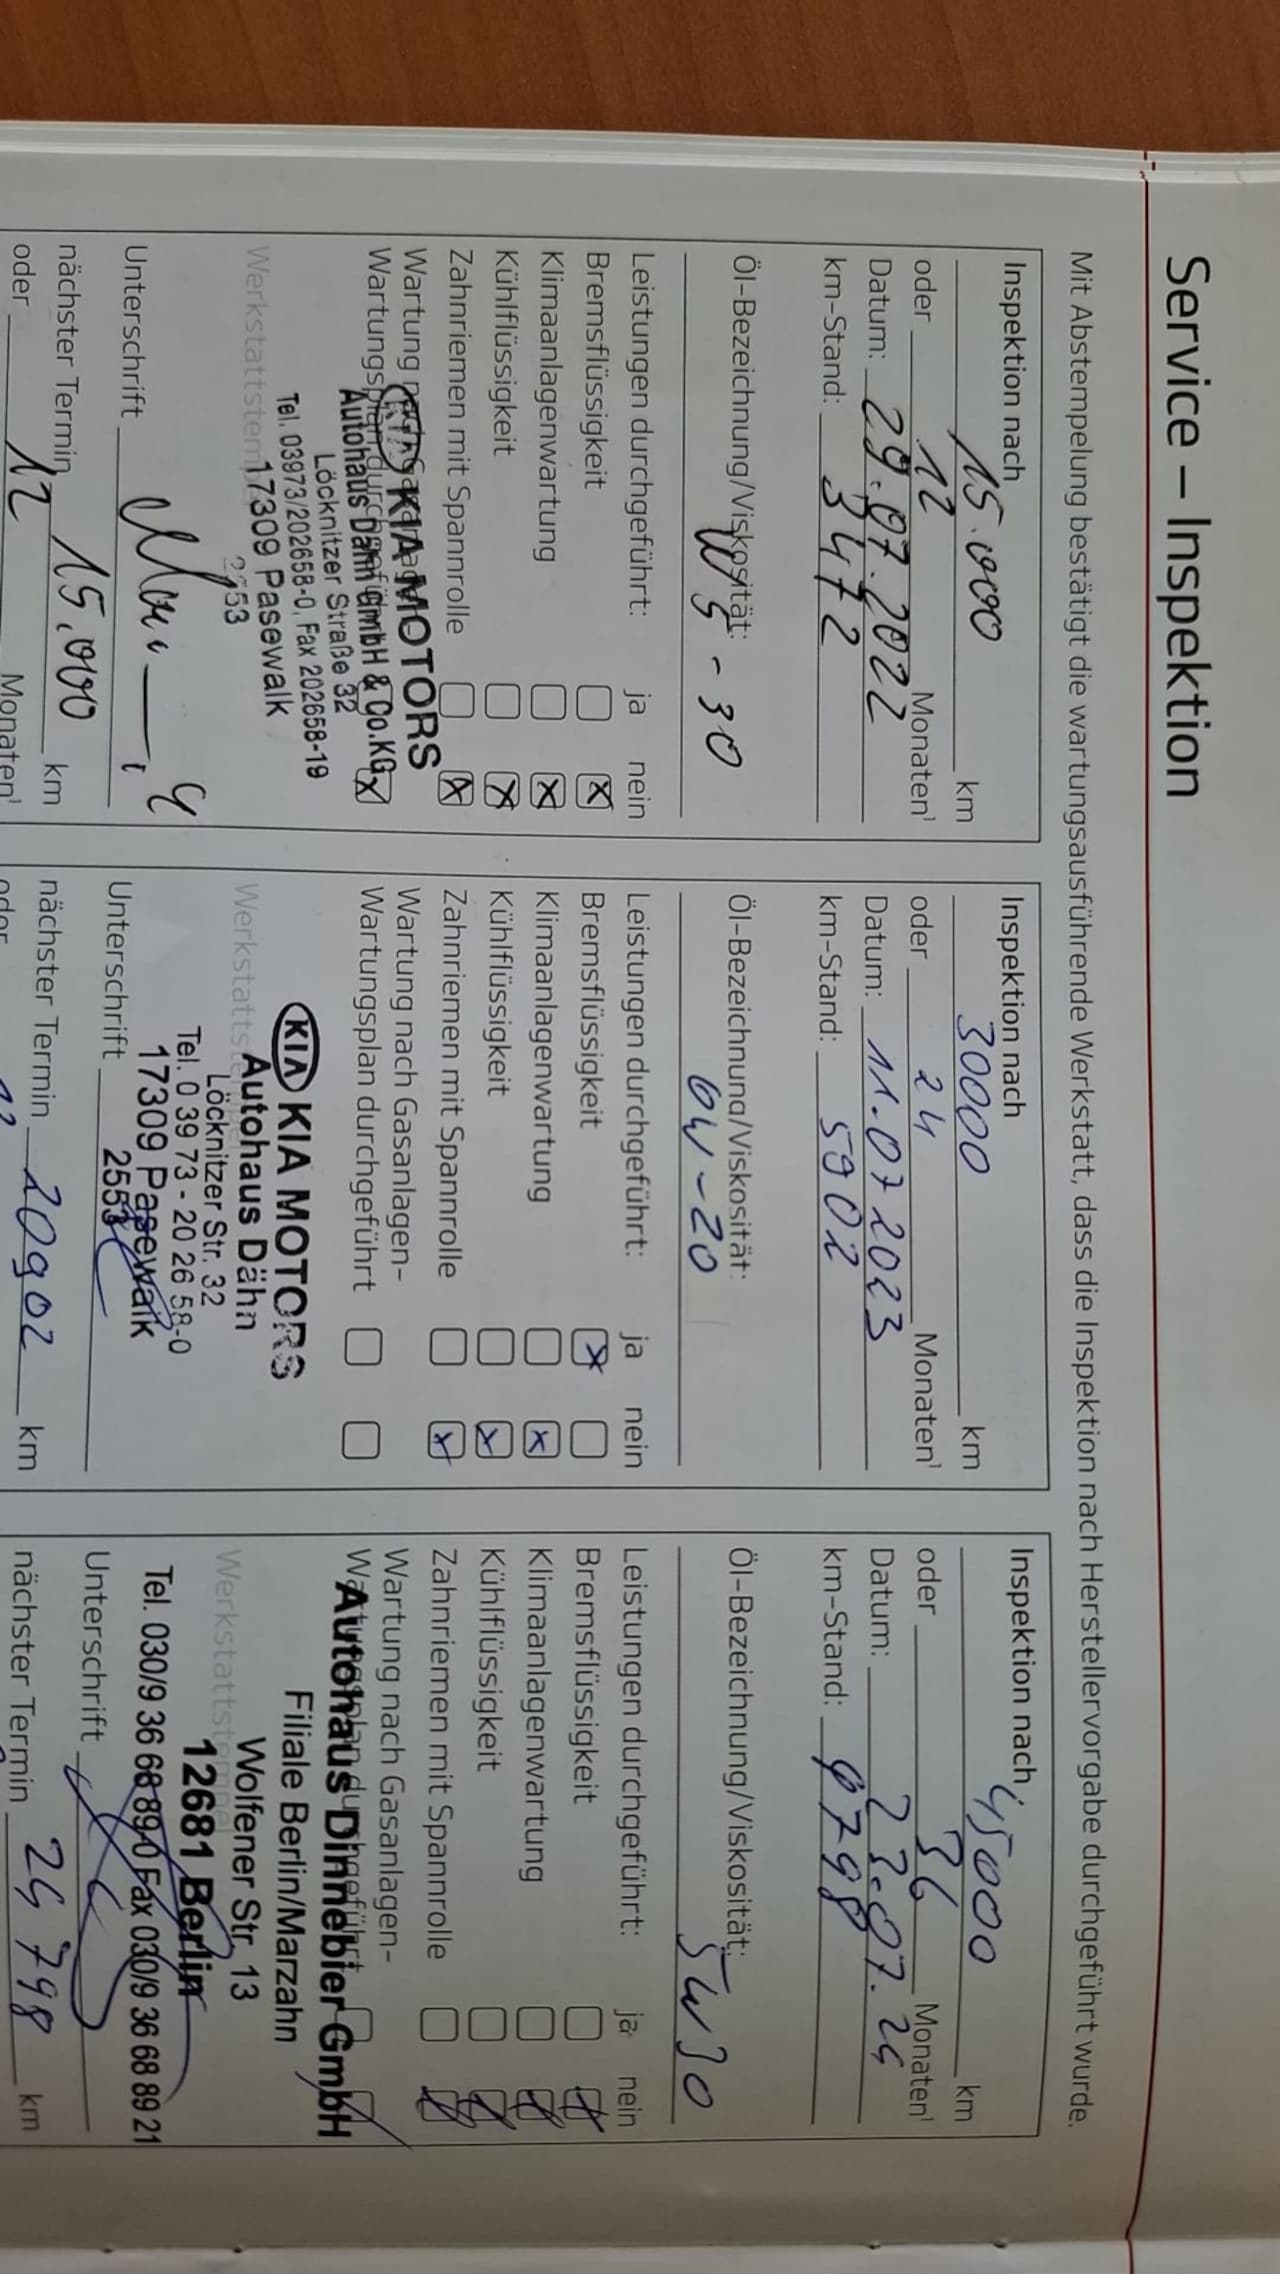 Service – Inspektion
Mit Abstempelung bestätigt die wartungsausführende Werkstatt, dass die Inspektion nach Herstellervorgabe durchgeführt wurde.
Inspektion nach
15.000 km
oder 12 Monaten¹
Datum: 29.07.2022
km-Stand: 3472
Öl-Bezeichnung/Viskosität:
W5-30
Leistungen durchgeführt: ja nein
Bremsflüssigkeit x
Klimaanlagenwartung x
Kühlflüssigkeit x
Zahnriemen mit Spannrolle x
Wartung
KIA MOTORS
Wartungsplan x
Autohaus Dähn GmbH & Co.KG
Löcknitzer Straße 32
Tel. 03973/202658-0, Fax 202658-19
17309 Pasewalk
Unterschrift
nächster Termin 15.000 km
oder 12 Monaten¹
Inspektion nach
30000 km
oder 24 Monaten¹
Datum: 11.07.2023
km-Stand: 5902
Öl-Bezeichnung/Viskosität:
0W-20
Leistungen durchgeführt: ja nein
Bremsflüssigkeit x
Klimaanlagenwartung x
Kühlflüssigkeit x
Zahnriemen mit Spannrolle x
Wartung nach Gasanlagen-
Wartungsplan durchgeführt
KIA KIA MOTORS
Autohaus Dähn
Löcknitzer Str. 32
Tel. 0 39 73 - 20 26 58-0
17309 Pasewalk
2553
Unterschrift
nächster Termin 20902 km
oder
Inspektion nach
45000 km
oder 36 Monaten¹
Datum: 23.07.24
km-Stand: 9798
Öl-Bezeichnung/Viskosität:
5W30
Leistungen durchgeführt: ja nein
Bremsflüssigkeit x
Klimaanlagenwartung x
Kühlflüssigkeit x
Zahnriemen mit Spannrolle x
Wartung nach Gasanlagen-
Wartungsplan durchgeführt
Autohaus Dinnebier GmbH
Filiale Berlin/Marzahn
Wolfener Str. 13
12681 Berlin
Tel. 030/9 36 68 89 0 Fax 030/9 36 68 89 21
Unterschrift
nächster Termin 24798 km